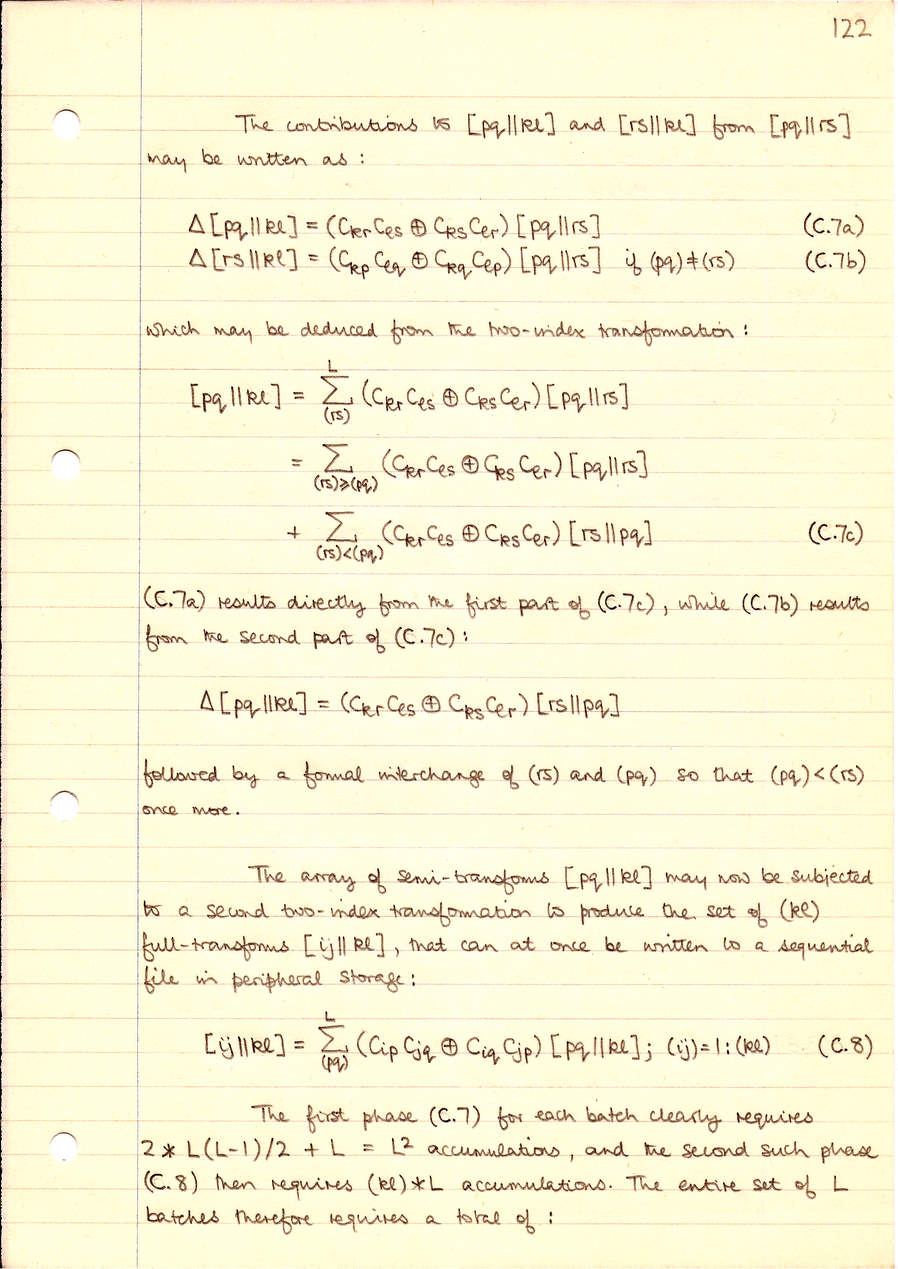 122
The contributions to [pq||kl] and [rs||kl] from [pq||rs]
may be written as :
Δ[pq||kl] = (CkrCls ⊕ CksClr)[pq||rs] (C.7a)
Δ[rs||kl] = (CkpClq ⊕ CkqClp)[pq||rs] if (pq)≠(rs) (C.7b)
which may be deduced from the two-index transformation :
[pq||kl] = L∑(rs) (CkrCls ⊕ CksClr)[pq||rs]
= ∑(rs)≥(pq) (CkrCls ⊕ CksClr)[pq||rs]
+ ∑(rs)<(pq) (CkrCls ⊕ CksClr)[rs||pq] (C.7c)
(C.7a) results directly from the first part of (C.7c), while (C.7b) results
from the second part of (C.7c) :
Δ[pq||kl] = (CkrCls ⊕ CksClr)[rs||pq]
followed by a formal interchange of (rs) and (pq) so that (pq)<(rs)
once more.
The array of semi-transforms [pq||kl] may now be subjected
to a second two-index transformation to produce the set of (kl)
full-transforms [ij||kl], that can at once be written to a sequential
file in peripheral storage :
[ij||kl] = L∑(pq) (CipCjq ⊕ CiqCjp)[pq||kl]; (ij)=1:(kl) (C.8)
The first phase (C.7) for each batch clearly requires
2 * L(L-1)/2 + L = L² accumulations, and the second such phase
(C.8) then requires (kl)*L accumulations. The entire set of L
batches therefore requires a total of :